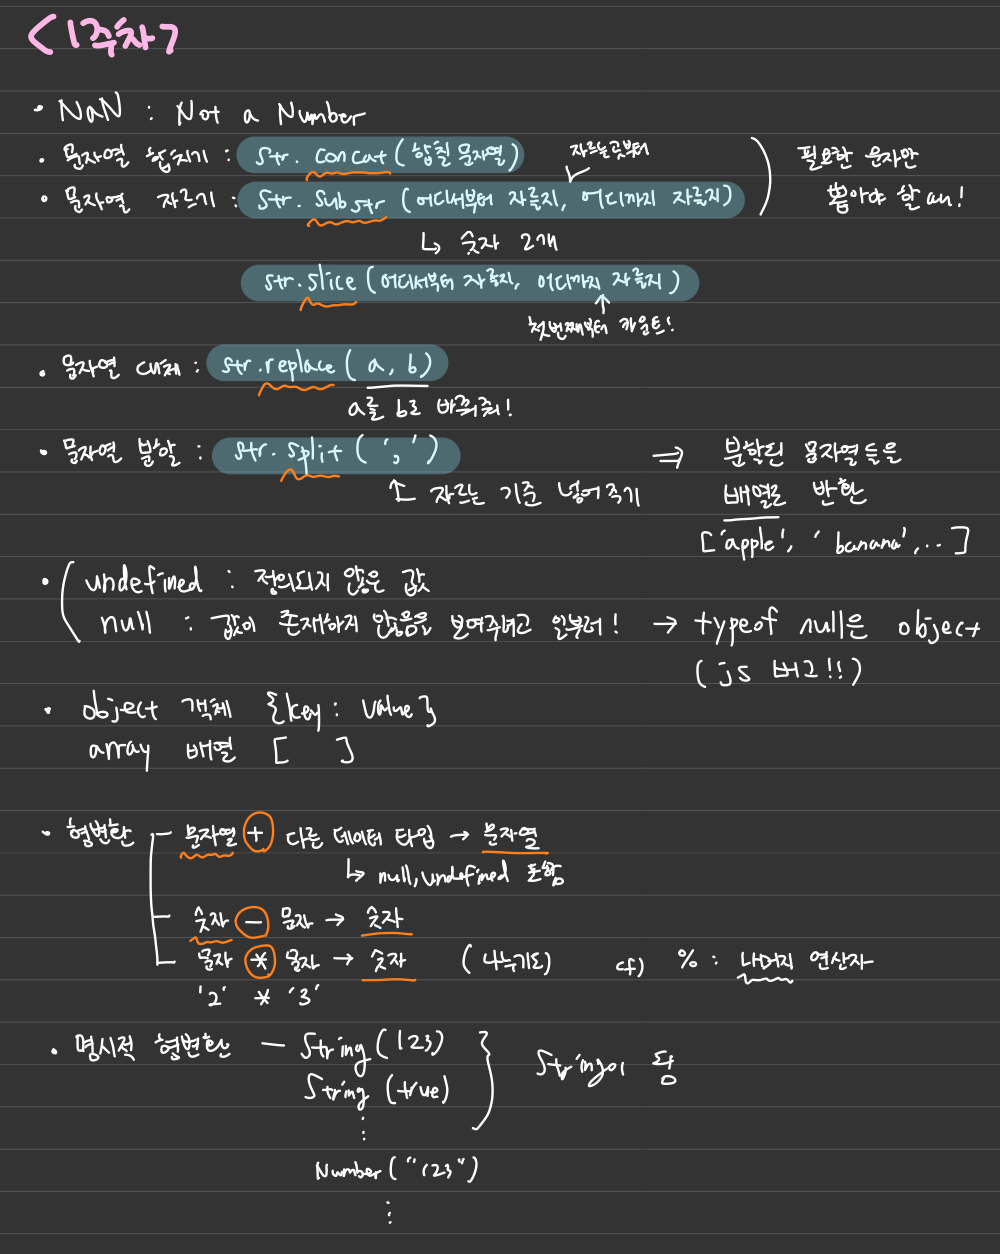 <1주차>
• NaN : Not a Number
• 문자열 합치기 : str. concat ( 합칠 문자열 )
자르는곳부터
• 문자열 자르기 : str. substr (어디서부터 자를지, 어디까지 자를지)
필요한 문자만
뽑아야 할 때!
↳ 숫자 2개
str.slice (어디서부터 자를지, 어디까지 자를지)
첫번째부터 카운트!
• 문자열 대체 : str.replace ( a, b)
a를 b로 바꿔줘!
• 문자열 분할 : str. split ( ',' ) ⇒ 분할된 문자열들을
자르는 기준 넣어주기 배열로 반환
['apple', 'banana', ..]
• undefined : 정의되지 않은 값
null : 값이 존재하지 않음을 보여주려고 일부러! → typeof null은 object
(js 버그!!)
• object 객체 {key : value}
array 배열 [ ]
• 형변환 - 문자열 + 다른 데이터 타입 → 문자열
↳ null, undefined 포함
- 숫자 - 문자 → 숫자
- 문자 * 문자 → 숫자 (나누기도) cf) % : 나머지 연산자
'2' * '3'
• 명시적 형변환 - String(123)
String (true)
String이 됨
⋮
Number("123")
⋮